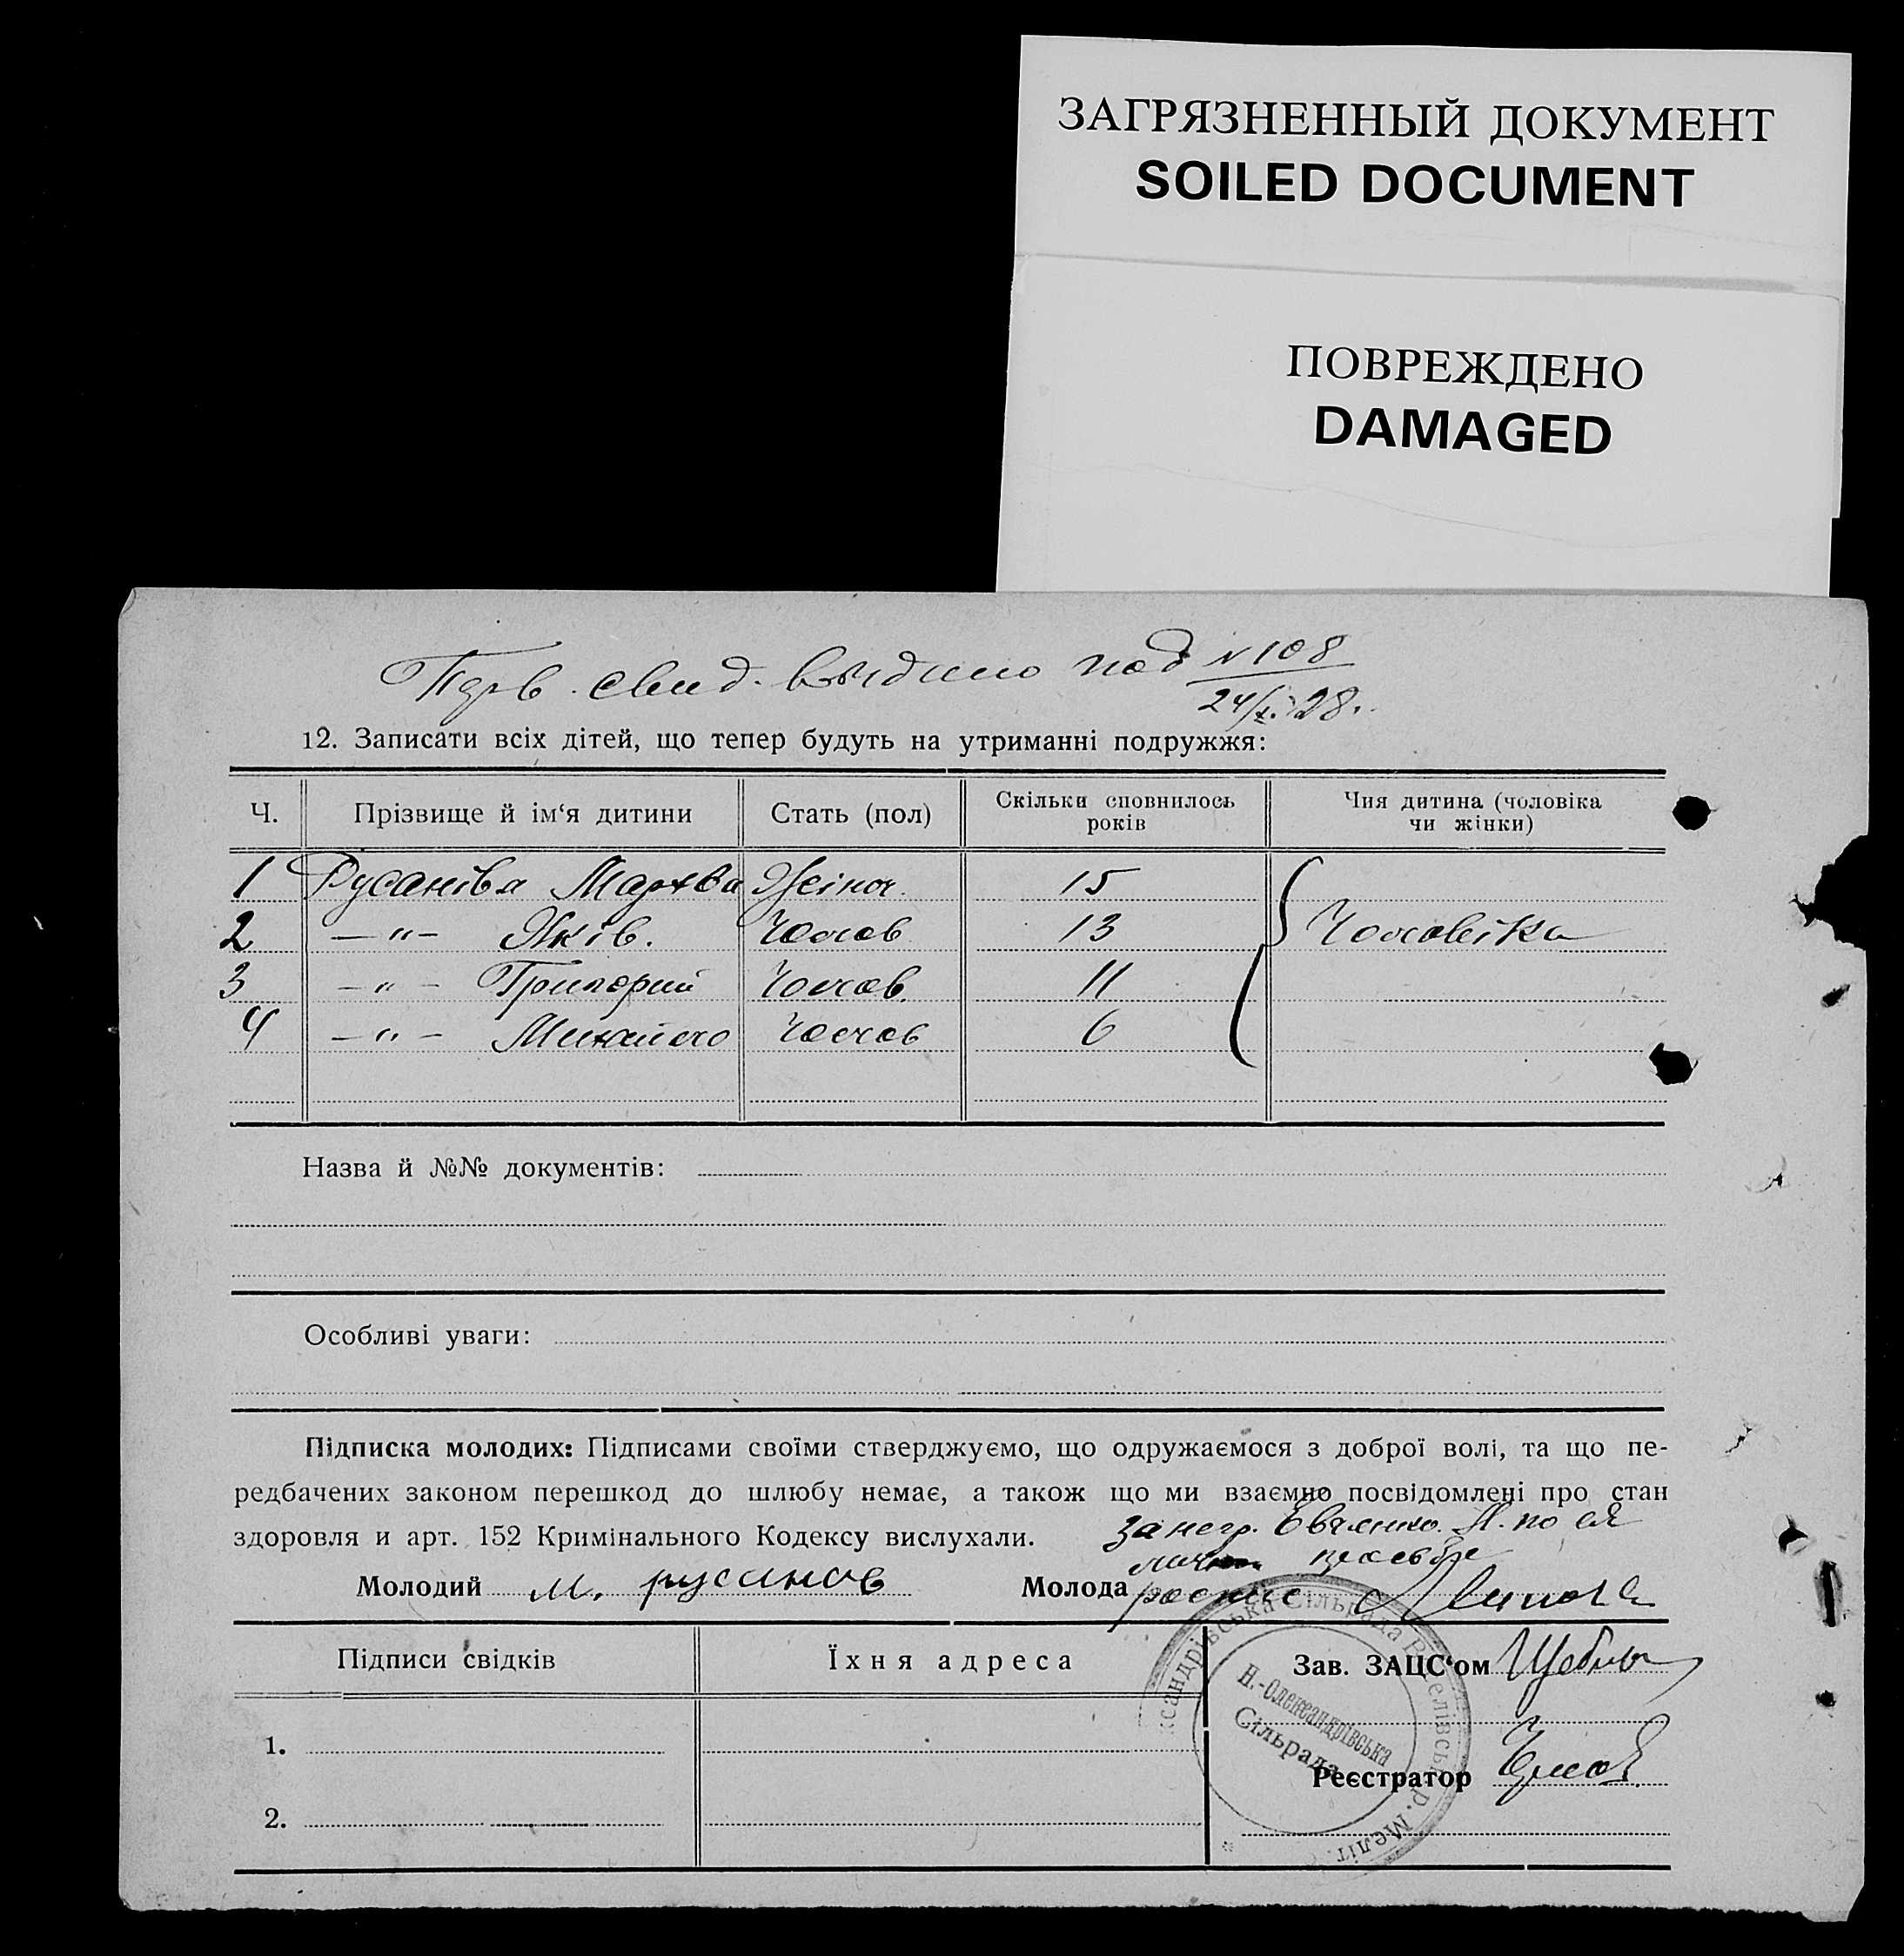 ЗАГРЯЗНЕННЫЙ ДОКУМЕНТ
SOILED DOCUMENT
ПОВРЕЖДЕНО
DAMAGED
свид. выдано под N 108
24/X 28.
12. Записати всіх дітей, що тепер будуть на утриманні подружжя:
Ч. Прізвище й ім‘я дитини Стать (пол) Скільки сповнилось років Чия дитина (чоловіка чи жінки)
1 Русанівa Мархва Жіноч. 15
2 —"— Яків. Чолов 13 Чоловіка
3 —"— Григорий Чолов. 11
4 —"— Михайло Чолов 6
Назва й №№ документів:
Особливі уваги:
Підписка молодих: Підписами своїми стверджуємо, що одружаємося з доброї волі, та що пе-
редбачених законом перешкод до шлюбу немає, а також що ми взаємно посвідомлені про стан
здоровля и арт. 152 Кримінального Кодексу вислухали. за негр. по ея
Молодий м. русанов Молода
Підписи свідків Їхня адреса Зав. ЗАЦС‘ом
1.
Реєстратор
2.
Н.-Олександрівська
Сільрада
ксандрівська Сільрада р. Меліт.